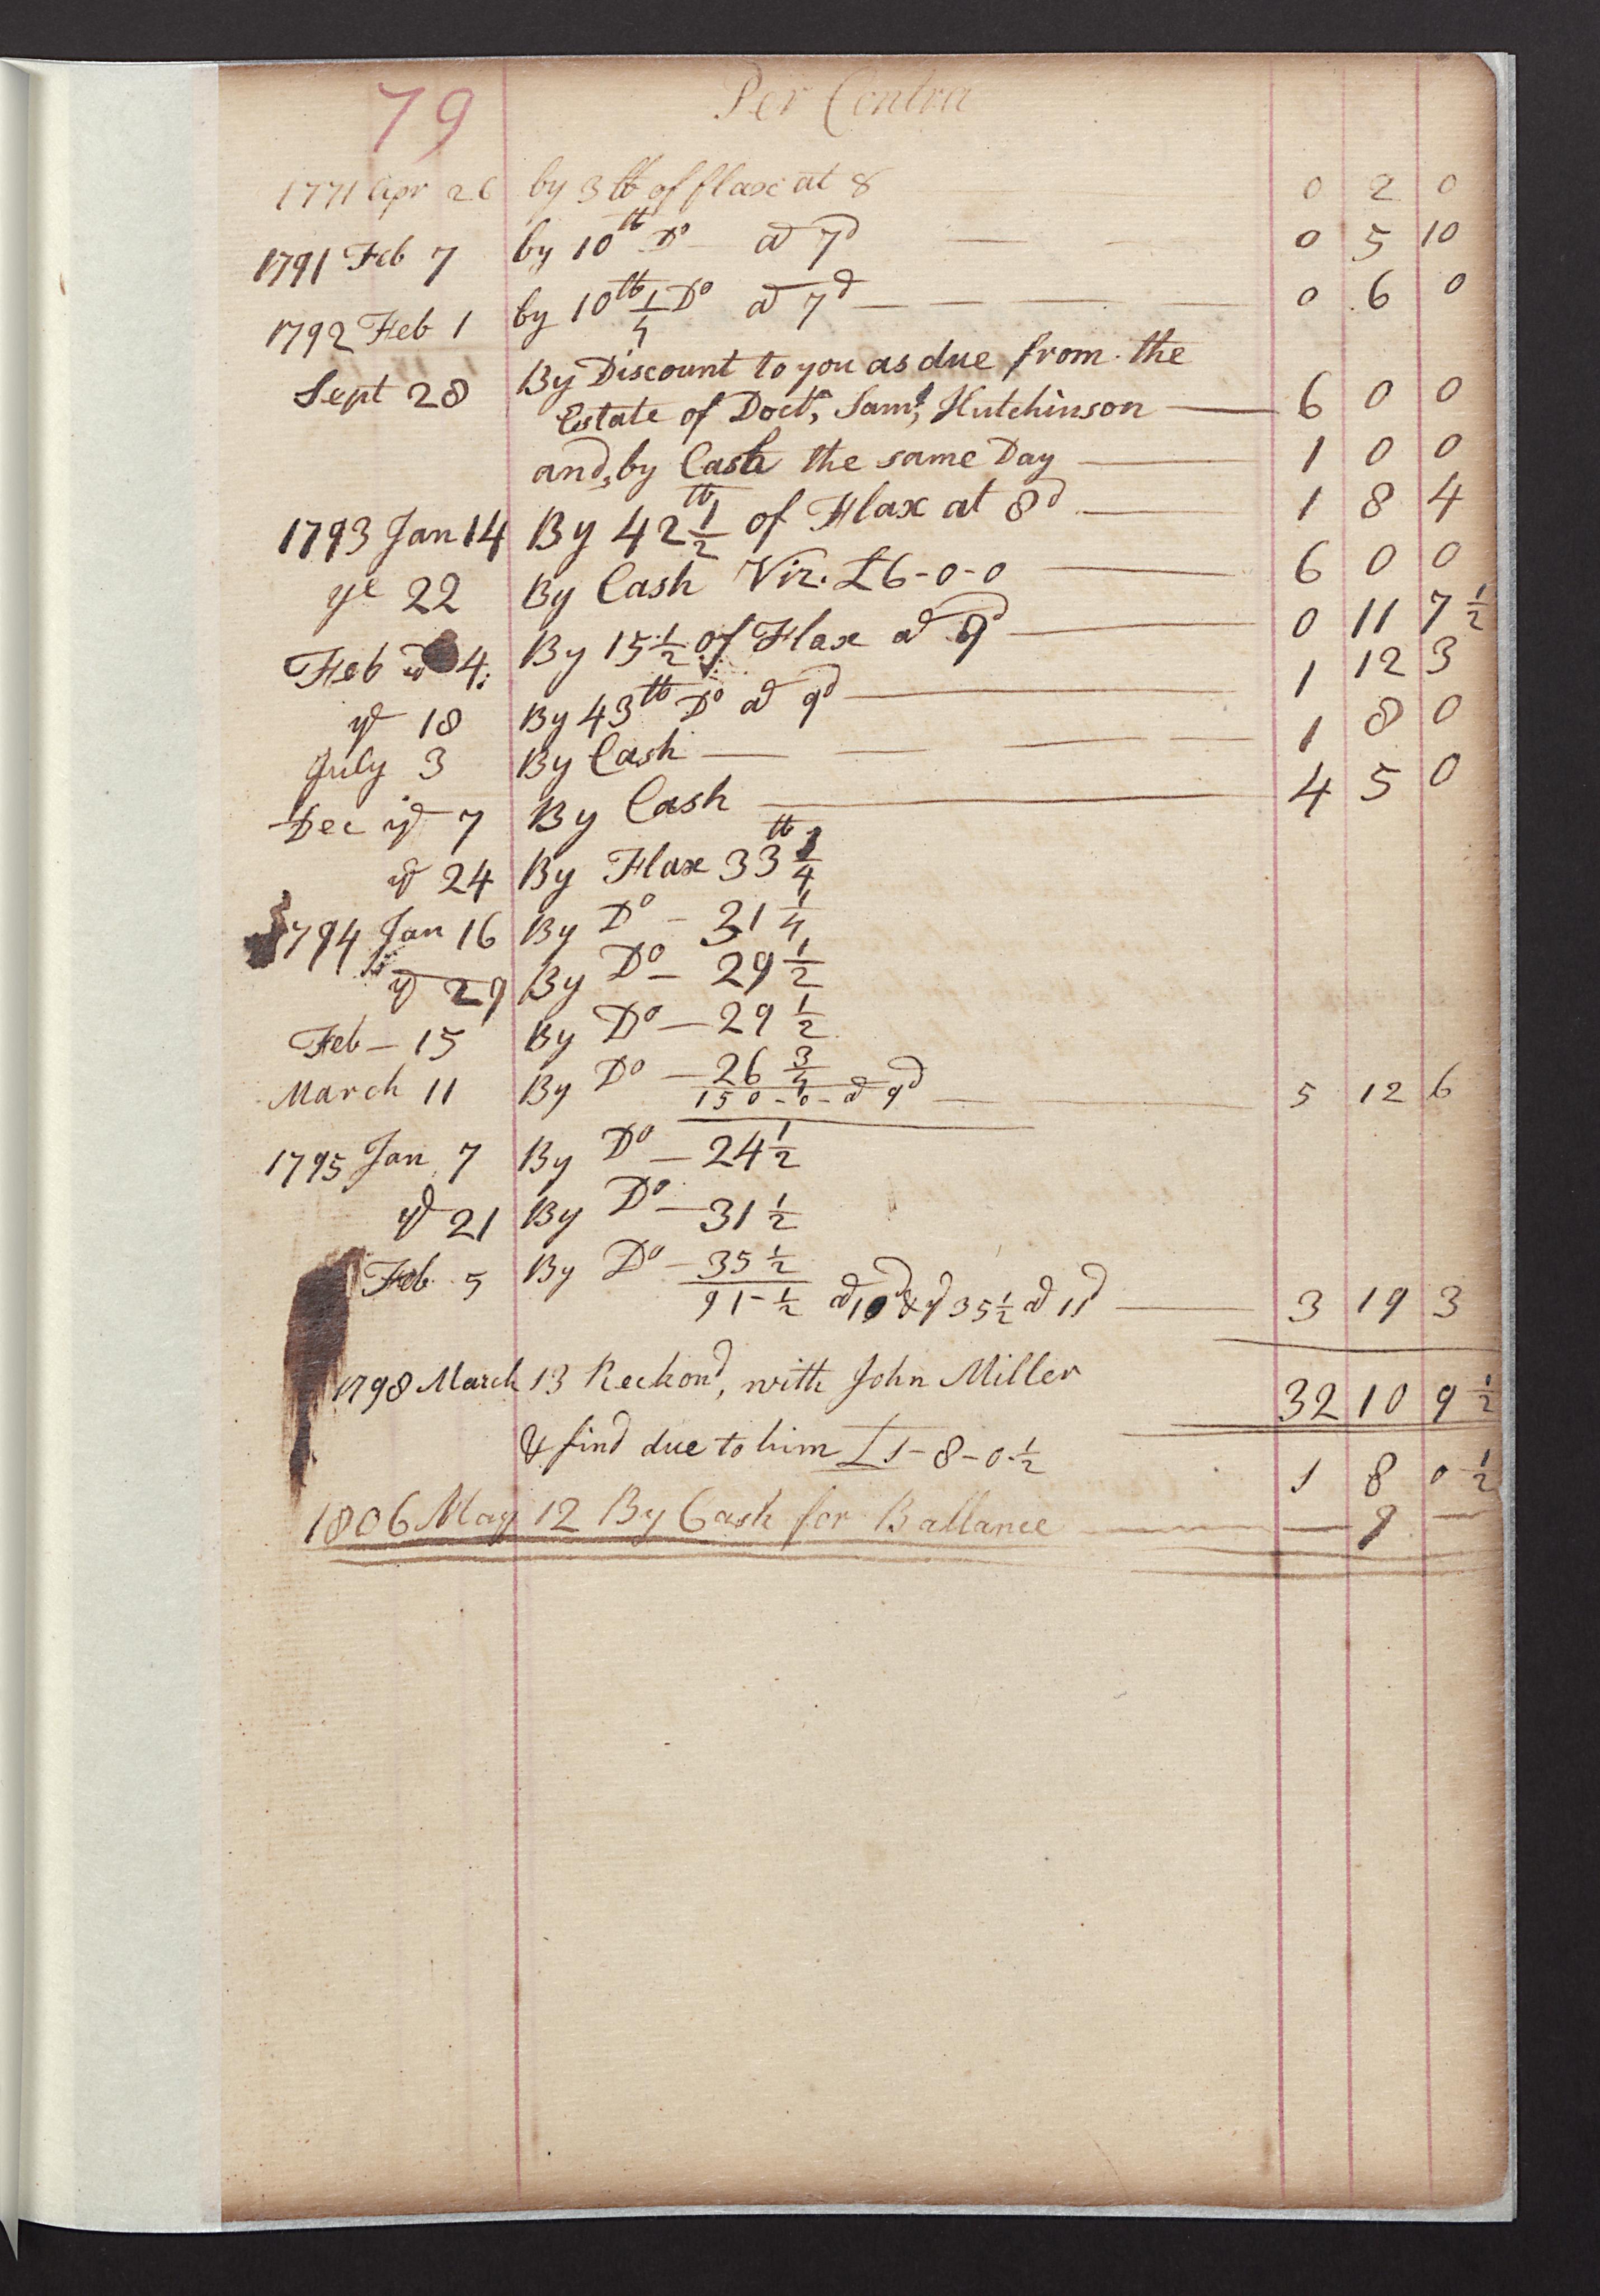 79 Per Contra
1771 Apr 26 by 3 lb of flax at 8 0 2 0
1791 Feb 7 by 10 lb Do at 7d 0 5 10
1792 Feb 1 by 10 lb 1/4 Do at 7d 0 6 0
Sept 28 By Discount to you as due from the
Estate of Doctr, Saml, Hutchinson 6 0 0
and, by Cash the same Day 1 0 0
1793 Jan 14 By 42 lb 1/2 of Flax at 8d 1 8 4
ye 22 By Cash Viz. £6-0-0 6 0 0
Feb ye 4 By 15 1/2 of Flax at 9d 0 11 7 1/2
ye 18 By 43 lb Do at 9d 1 12 3
July 3 By Cash 1 8 0
Dec ye 7 By Cash 4 5 0
ye 24 By Flax 33 lb 1/4
1794 Jan 16 By Do - 31 1/4
ye 29 By Do - 29 1/2
Feb - 15 By Do - 29 1/2
March 11 By Do - 26 3/4
150 - 0 - at 9d 5 12 6
1795 Jan 7 By Do - 24 1/2
ye 21 By Do - 31 1/2
Feb 5 By Do - 35 1/2
91 - 1/2 at 10d & ye 35 1/2 at 11d 3 19 3
1798 March 13 Reckond, with John Miller 32 10 9 1/2
& find due to him £1-8-0 1/2 1 8 0 1/2
1806 May 12 By Cash for Ballance — 9 —